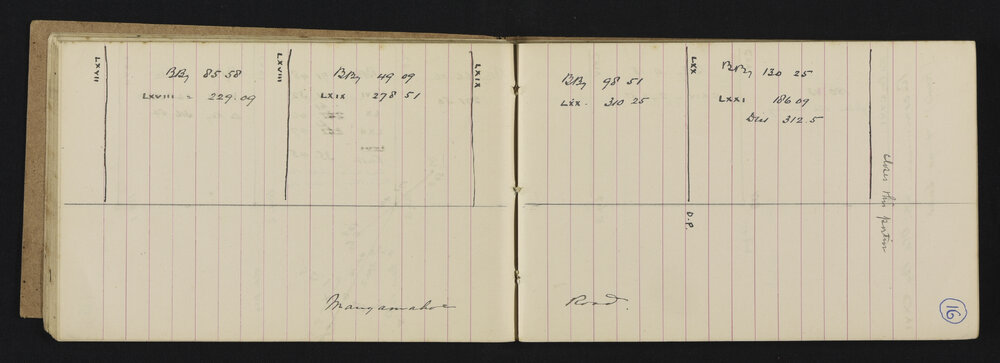 LXVII
BBy 85 58
LXVIII 229.09
LXVIII
BBy 49 09
LXIX 278 51
LXIX
BBy 98 51
LXX. 310 25
LXX
BBy 130 25
LXXI 186 09
Dis 312.5
closes this portion
D.P.
Mangamahoe Road.
16